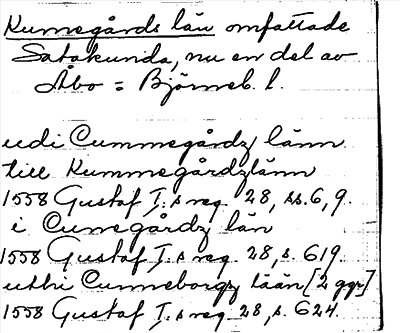 Kumogårds län omfattade
Satakunda, nu en del av
Åbo = Björneb. l.
udi Cummegårdz länn
till Kummegårdzlänn
1558 Gustaf I:s reg. 28, ss. 6, 9.
i Cumegårdz län
1558 Gustaf I:s reg. 28, s. 619.
uthi Cumneborgz lään [2 ggr]
1558 Gustaf I:s reg. 28, s. 624.